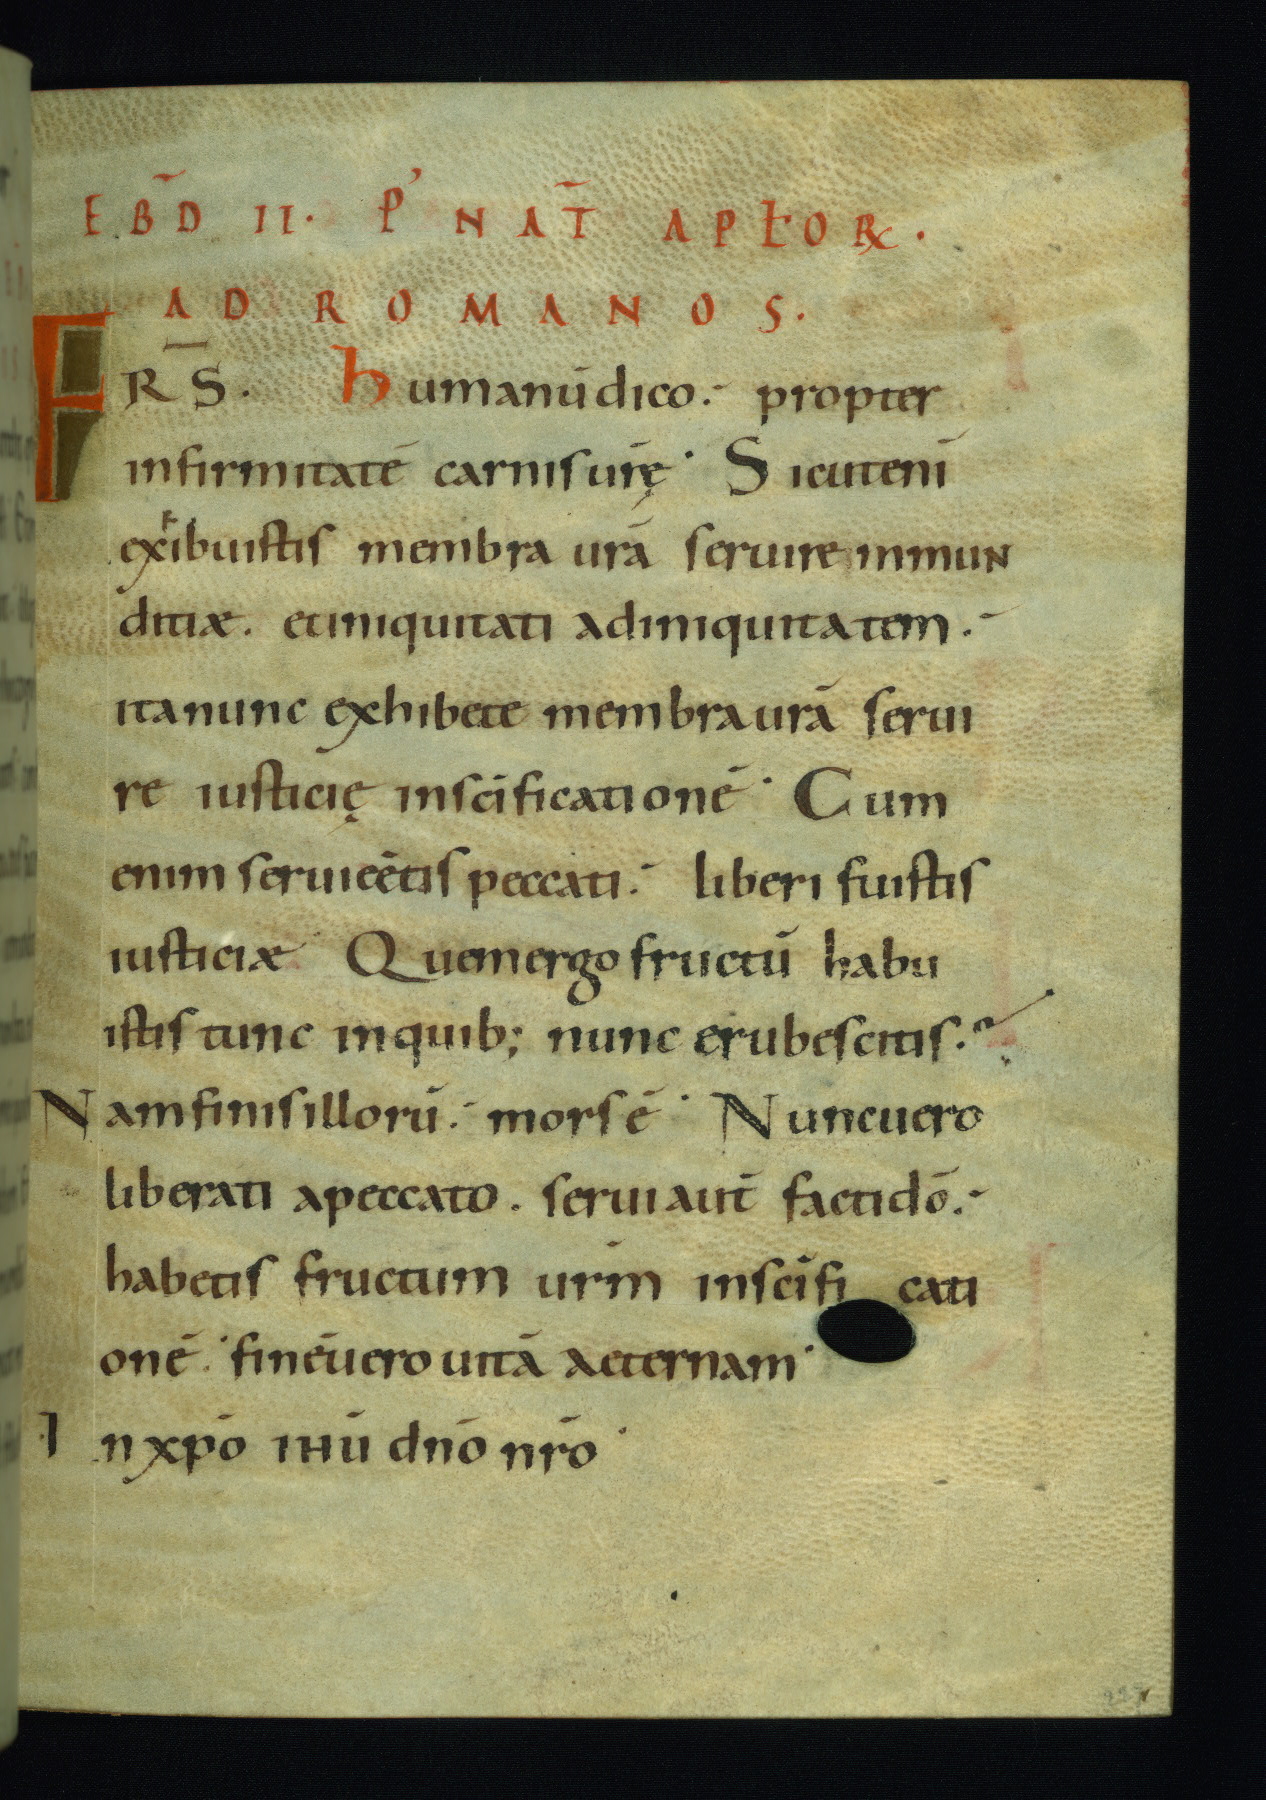 EBD̄ II. P' NAT̄ APŁOꝜ.
AD ROMANOS.
FRS̄. humanū dico. propter
infirmitatē carnis urę̄. Sicut eni̅
exhibuistis membra ur̄a seruire inmun
ditiæ. et iniquitati ad iniquitatem.
ita nunc exhibete membra ur̄a serui
re iusticię in scīficationē. Cum
enim seruieētis peccati. liberi fuistis
iusticiæ. Quem ergo fructū habu
istis tunc in quib; nunc erubescitis.
Nam finis illorū. mors ē. Nunc uero
liberati a peccato. serui aut̄ facti dō.
habetis fructum ur̄m in scīficati
onē. finē uero uitā aeternam.
In xp̄o ihū dn̄o nr̄o.